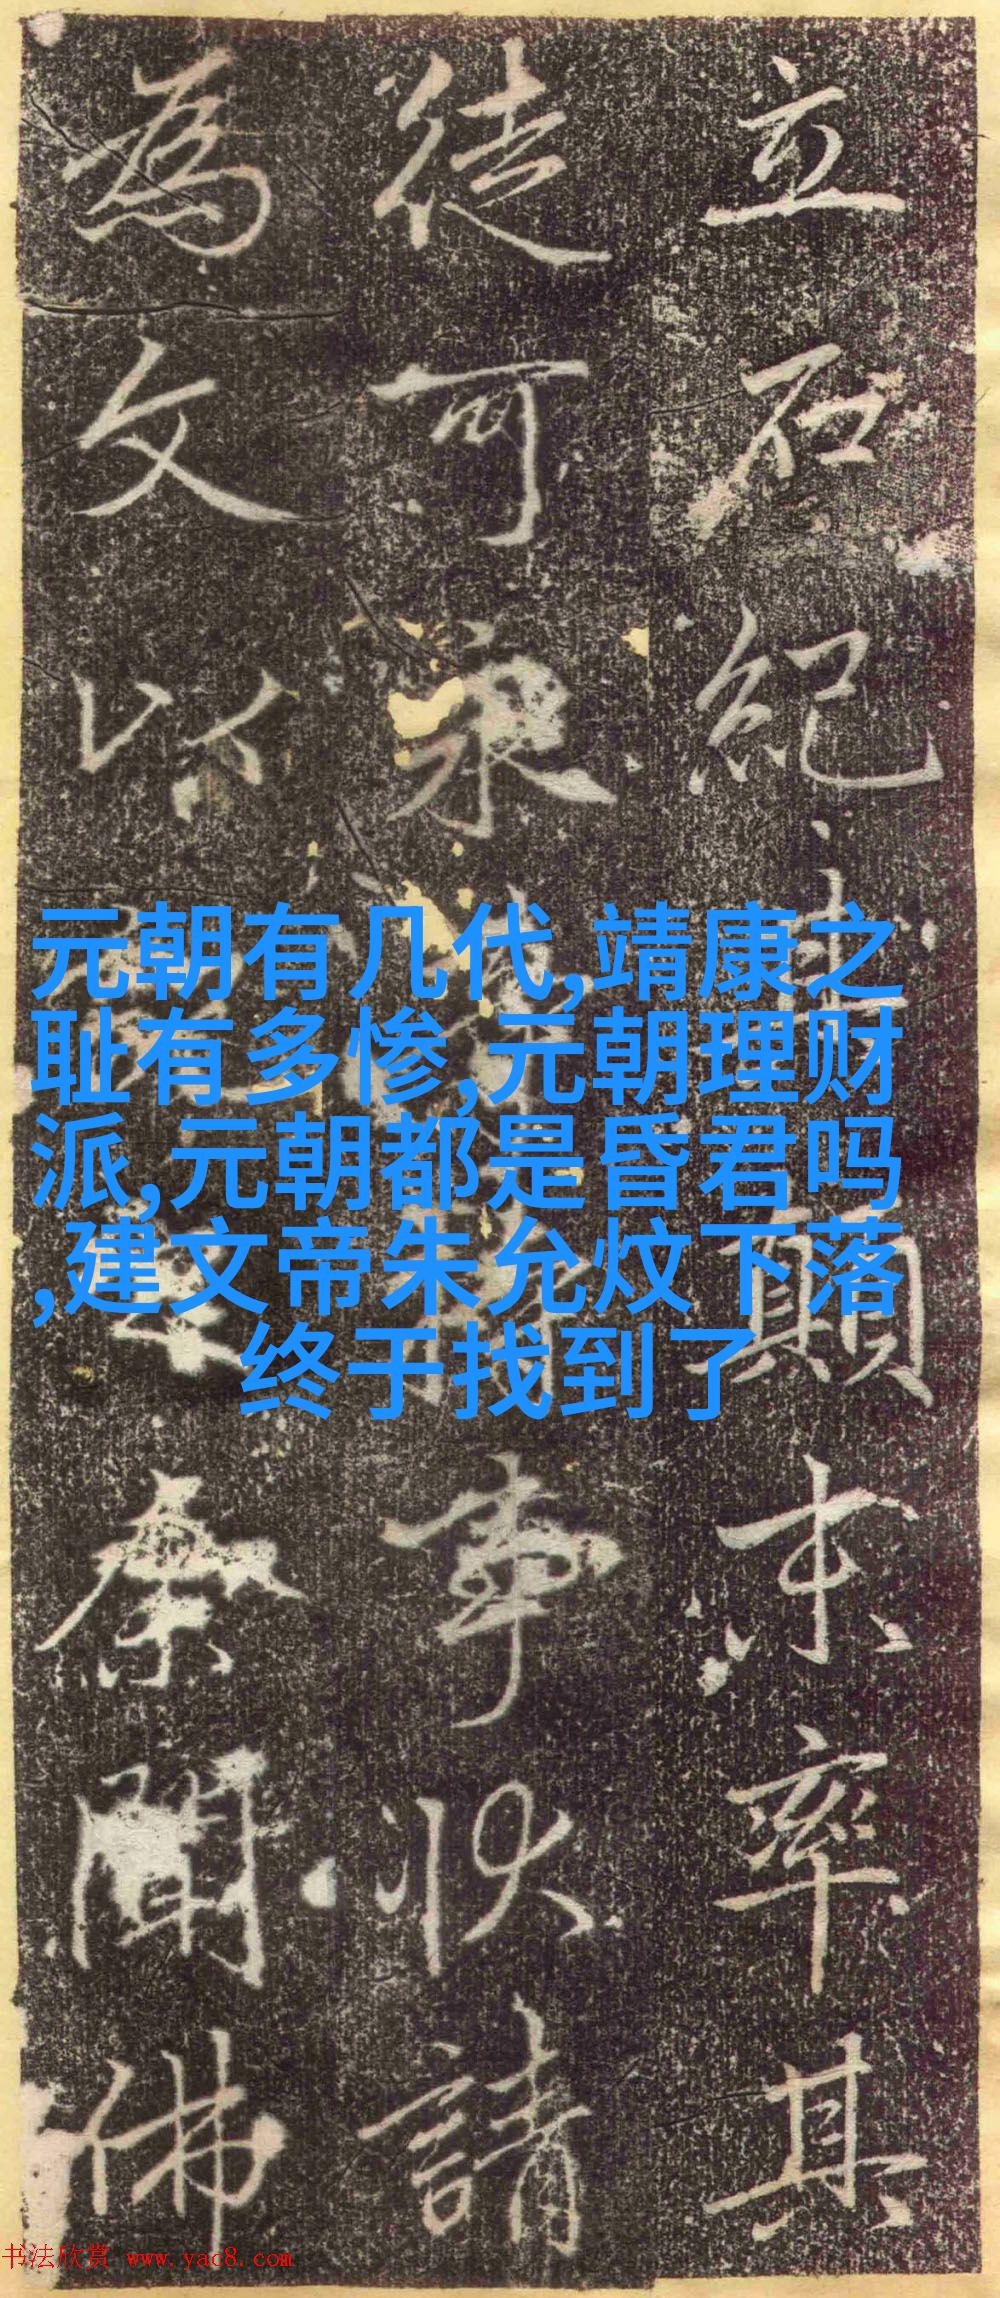 立石紀顛末率其
徒可永事狀請
為文以聞佛
元朝有几代,靖康之
耻有多惨,元朝理财
派,元朝都是昏君吗
,建文帝朱允炆下落
终于找到了
书法欣赏 www.yac8.com